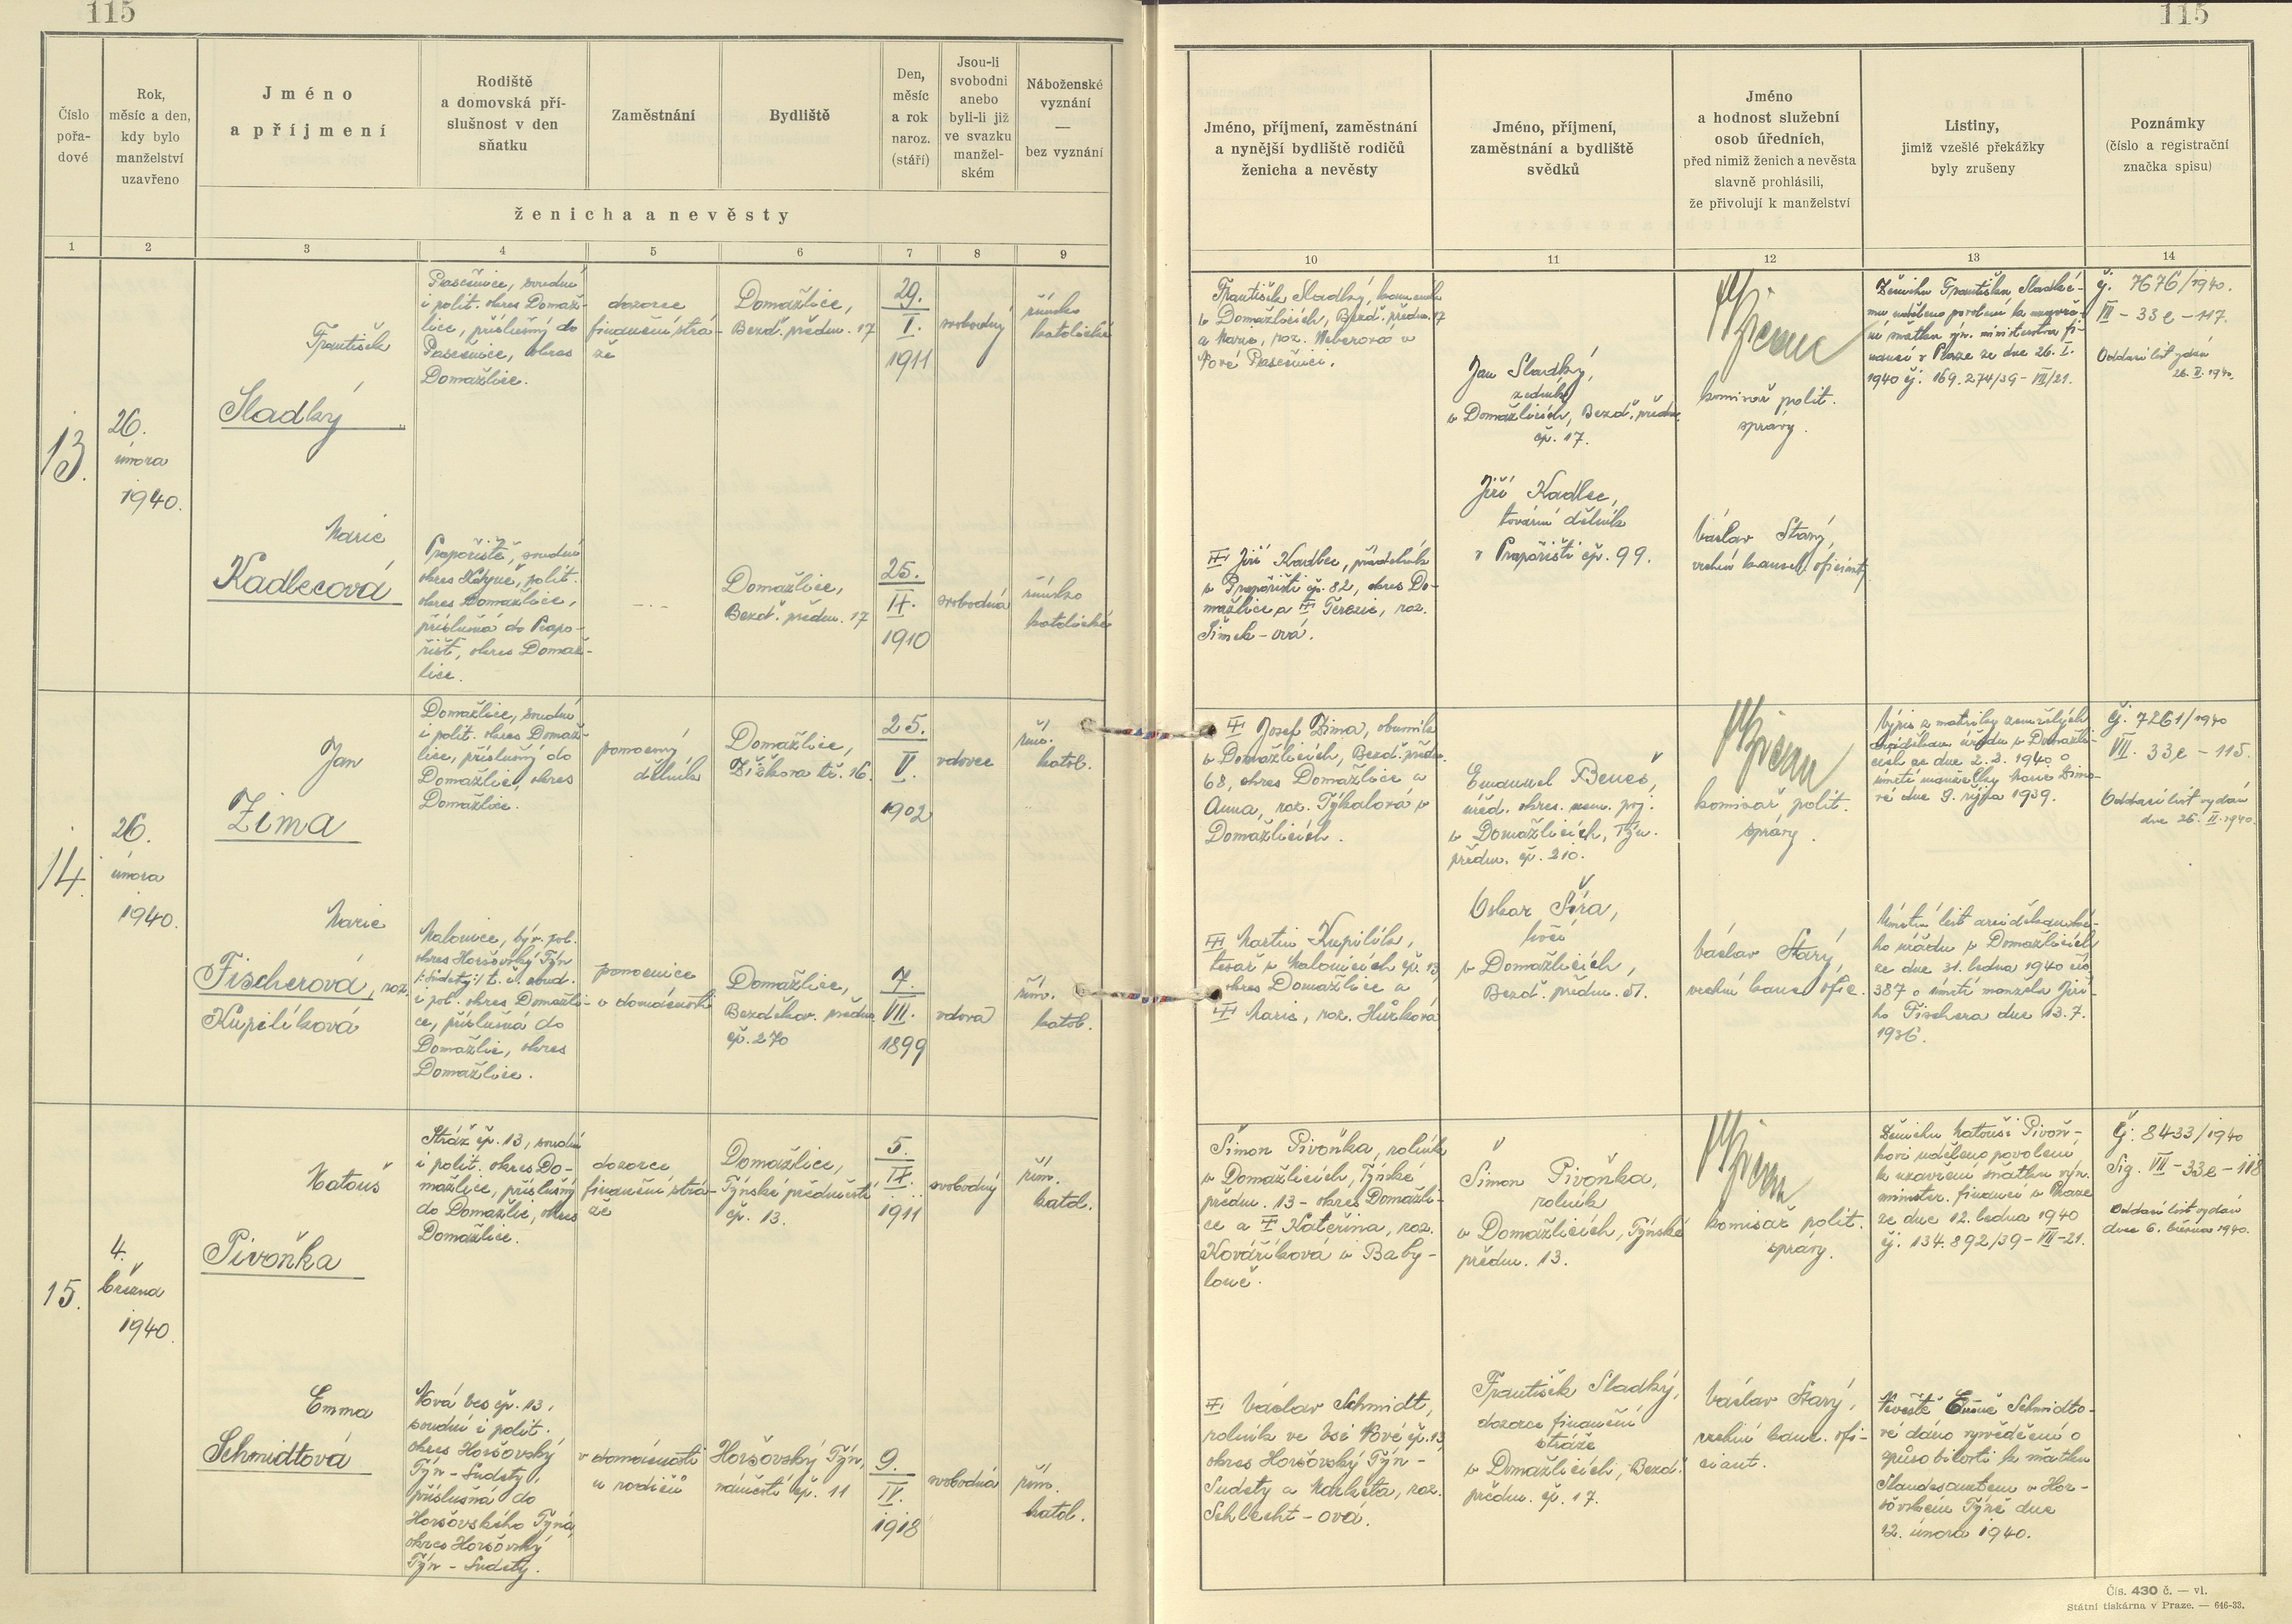 115
115
Číslo
pořa-
dové
Rok,
měsíc a den,
kdy bylo
manželství
uzavřeno
Jméno
a příjmení
Rodiště
a domovská pří-
slušnost v den
sňatku
Zaměstnání
Bydliště
Den,
měsíc
a rok
naroz.
(stáří)
Jsou-li
svobodni
anebo
byli-li již
ve svazku
manžel-
ském
Náboženské
vyznání
—
bez vyznání
ženicha a nevěsty
Jméno, příjmení, zaměstnání
a nynější bydliště rodičů
ženicha a nevěsty
Jméno, příjmení,
zaměstnání a bydliště
svědků
Jméno
a hodnost služební
osob úředních,
před nimiž ženich a nevěsta
slavně prohlásili,
že přivolují k manželství
Listiny,
jimiž vzešlé překážky
byly zrušeny
Poznámky
(číslo a registrační
značka spisu)
1 2 3 4 5 6 7 8 9
10 11 12 13 14
13.
26.
února
1940.
František
Sladký
Pasečnice, soudní
i polit. okres Domaž-
lice, příslušný do
Pasečnice, okres
Domažlice.
dozorce
finanční strá-
že
Domažlice,
Bezd. předm. 17
29.
I.
1911
svobodný
římsko
katolické
František Sladký, kameník
v Domažlicích, Bezd. předm. 17
a Marie, roz. Weberová v
Nové Pasečnici.
Jan Sladký,
zedník
v Domažlicích, Bezd. předm.
čp. 17.
komisař polit.
správy.
Ženichu Františku Sladké-
mu uděleno povolení k uzavře-
ní sňatku výn. ministerstva fi-
nancí v Praze ze dne 26. I.
1940 čj. 169.274/39 - VII/21.
čj. 7676/1940.
VII - 33e - 117.
Oddací list vydán
26. II. 1940.
Marie
Kadlecová
Prapořiště, soudní
okres Kdyně, polit.
okres Domažlice,
příslušná do Prapo-
řišť, okres Domaž-
lice.
- . -
Domažlice,
Bezd. předm. 17
25.
II.
1910
svobodná
římsko
katolické
Jiří Kadlec,
v Prapořišti čp. 82, okres Do-
mažlice a Terezie, roz.
Šimek-ová.
Jiří Kadlec,
tovární dělník
v Prapořišti čp. 99.
Václav Starý,
vrchní kancel. oficiant
14.
26.
února
1940.
Jan
Zima
Domažlice, soudní
i polit. okres Domaž-
lice, příslušný do
Domažlic, okres
Domažlice.
pomocný
dělník
Domažlice,
Žižkova tř. 16.
25.
V.
1902
vdovec
řím.
katol.
Josef Zima, obuvník
v Domažlicích, Bezd. předm.
68, okres Domažlice a
Anna, roz. Týkalová v
Domažlicích.
Emanuel Beneš,
úřed. okres. nem. poj.
v Domažlicích, Týn.
předm. čp. 210.
komisař polit.
správy.
Výpis z matriky zemřelých
arciděkan. úřadu v Domažli-
cích ze dne 2.2. 1940 o
úmrtí manželky Marie Zimo-
vé dne 9. října 1939.
čj. 7261/1940
VII. 33e - 115.
Oddací list vydán
dne 26. II. 1940.
Marie
Fischerová, roz.
Kupilíková
Malonice, býv. pol.
okres Horšovský Týn
/: Sudety :/ t. č. soud.
i pol. okres Domažli-
ce, příslušná do
Domažlic, okres
Domažlice.
pomocnice
v domácnosti
Domažlice,
Bezděkov. předm.
čp. 270
7.
VII.
1899
vdova
řím.
katol.
Martin Kupilík,
tesař v Malonicích čp. 13
okres Domažlice a
Marie, roz. Hůrková
Oskar Šíra,
kočí
v Domažlicích,
Bezd. předm. 51.
Václav Starý,
vrchní kanc. ofic.
Úmrtní list arciděkanské-
ho úřadu v Domažlicích
ze dne 31. ledna 1940 čís.
387 o úmrtí manžela Jiří-
ho Fischera dne 13. 7.
1936.
15.
4.
března
1940.
Matouš
Pivoňka
Stráž čp. 13, soudní
i polit. okres Do-
mažlice, příslušný
do Domažlic, okres
Domažlice.
dozorce
finanční strá-
že
Domažlice,
Týnské předměstí
čp. 13.
5.
IX.
1911
svobodný
řím.
katol.
Šimon Pivoňka, rolník
v Domažlicích, Týnské
předm. 13 - okres Domažli-
ce a Kateřina, roz.
Kováříková v Baby-
loně.
Šimon Pivoňka,
rolník
v Domažlicích, Týnské
předm. 13.
komisař polit.
správy.
Ženichu Matouši Pivoň-
kovi uděleno povolení
k uzavření sňatku výn.
minister. financí v Praze
ze dne 12. ledna 1940
čj. 134.892/39 - VII-21.
Čj. 8433/1940
Sig. VII - 33e - 118
Oddací list vydán
dne 6. března 1940.
Emma
Schmidtová
Nová Ves čp. 13,
soudní i polit.
okres Horšovský
Týn - Sudety,
příslušná do
Horšovského Týna,
okres Horšovský
Týn - Sudety.
v domácnosti
u rodičů
Horšovský Týn,
náměstí čp. 11
9.
IV.
1918
svobodná
řím.
katol.
Václav Schmidt,
rolník ve Vsi Nové čp. 13
okres Horšovský Týn -
Sudety a Markéta, roz.
Schlecht-ová.
František Sladký,
dozorce finanční
stráže
v Domažlicích, Bezd.
předm. čp. 17.
Václav Starý,
vrchní kanc. ofi-
ciant.
Nevěstě Emě Schmidto-
vé dáno vysvědčení o
způsobilosti k sňatku
Standesamtem v Hor-
šovském Týně dne
12. února 1940.
Čís. 430 č. — vl.
Státní tiskárna v Praze. — 646-33.